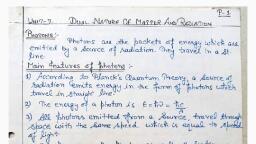 P-1
Unit-7. Dual Nature Of Matter And Radiation
Photons:- Photons are the packets of energy which are
emitted by a source of radiation. They travel in a st.
line.
Main features of photons:-
1) According to Planck's Quantum Theory, a source of
radiation emits energy in the form of photons which
travel in straight line.
2) The energy of a photon is E = hν = hc/λ
3) All photons emitted from a source, travel through
space with the same speed which is equal to speed
of light.